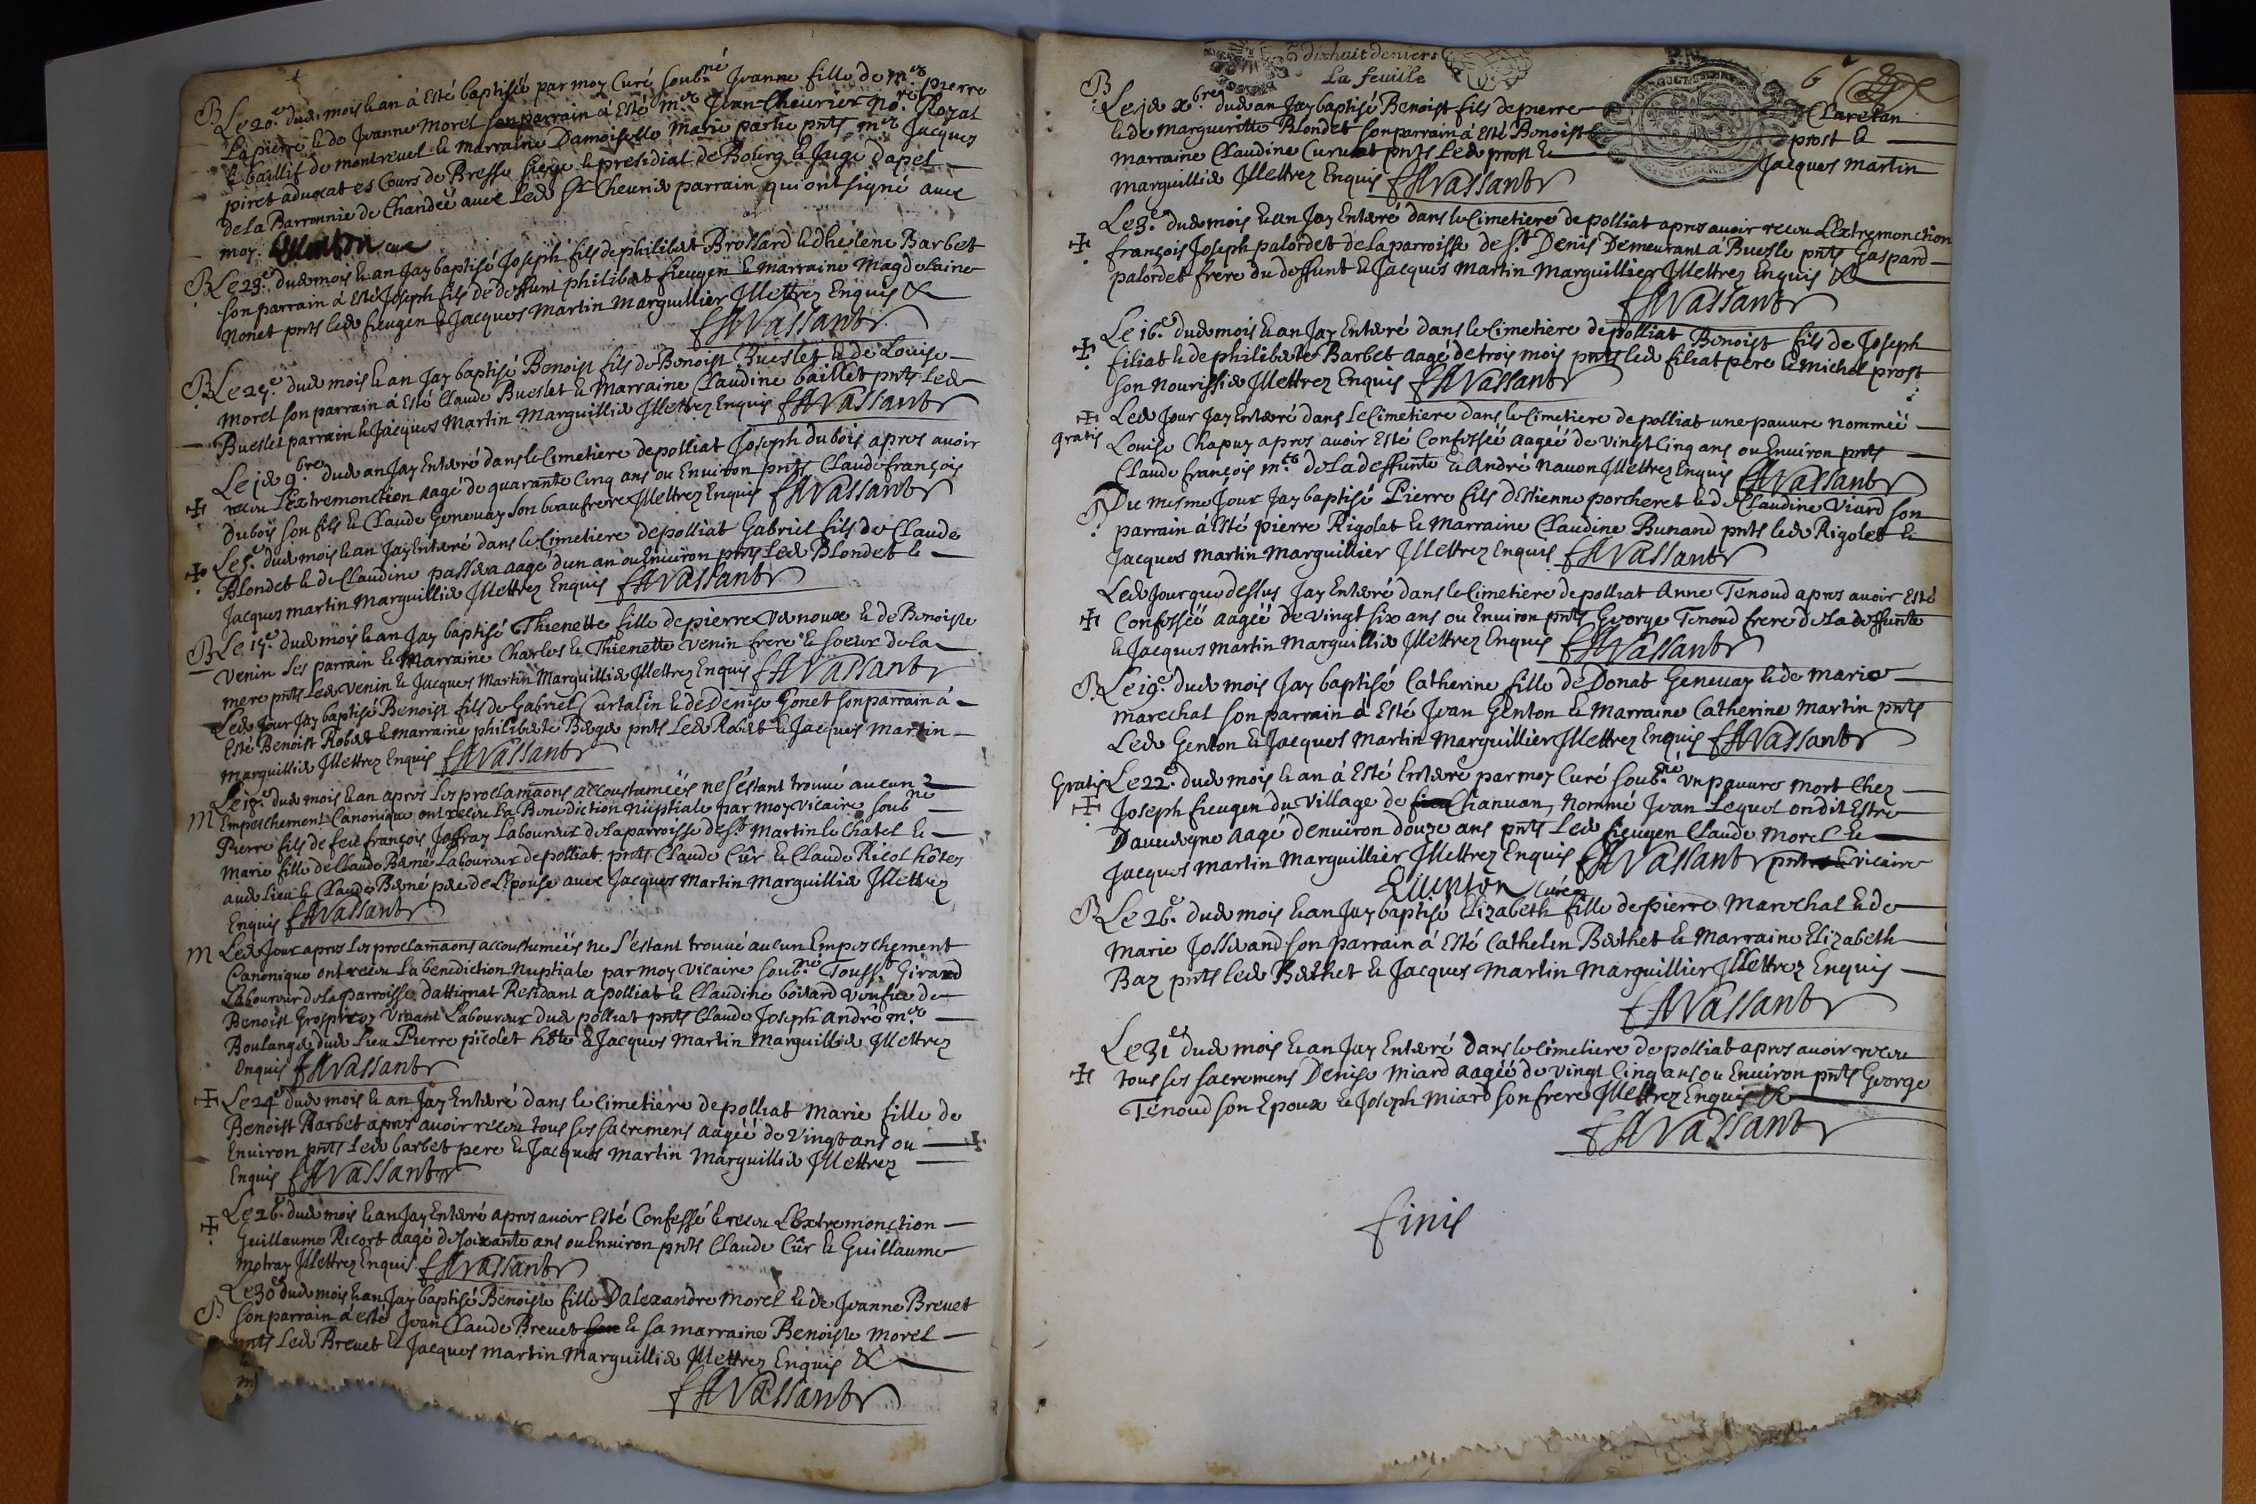 B Le 20.e dud. mois & an à Esté baptisée par moy Curé soub.né Jeanne fille de m.re pierre
Lapierre & de Jeanne Morel son parrain à Esté m.re Jean Cheurier No.re Royal
& baillif de montreuel & marraine Damoiselle Marie partie pnts m.re Jacques
piret aduocat es Cours de Bresse siege & presidial de Bourg & Juge dapel
de La Barronnie de Chandéé auec Led. Sr Cheurier parrain qui ont signé auec
moy.
B Le 23.e dud. mois & an Jay baptisé Joseph fils de philibert Brossard & dhelene Barbet
son parrain à Esté Joseph fils de deffunt philibert fieugen & marraine Magdelaine
Nonet pnts led. fieugen & Jacques Martin Marguillier Jllettrez Enquis &
Vassant
B Le 25.e dud. mois & an Jay baptisé Benoist fils de Benoist Bueslet & de Louise
Morel son parrain à Esté Claude Bueslet & Marraine Claudine baillet pnts Led.
Bueslet parrain & Jacques Martin Marguillier Jllettrez Enquis Vassant
Le j.er 9.bre dud. an Jay Enterré dans le Cimetiere de polliat Joseph dubois apres auoir
receu L'Extremonction aagé de quarante Cinq ans ou Enuiron pnts Claude françois
Dubois son fils & Claude Geneuay son beaufrere Jllettrez Enquis Vassant
Le 5.e dud. mois & an Jay Enterré dans le Cimetiere de polliat Gabriel fils de Claude
Blondet & de Claudine passera aagé d'un an ou Enuiron pnts Led. Blondet &
Jacques martin Marguillier Jllettrez Enquis Vassant
B Le 15.e dud. mois & an Jay baptisé Thienette fille de pierre Vernoux & de Benoiste
Venin ses parrain & Marraine Charles & Thienette Venin frere & soeur de la
mere pnts Led. Venin & Jacques Martin Marguillier Jllettrez Enquis Vassant
Led. Jour Jay baptisé Benoist fils de Gabriel Curtalin & de Denise Gonet son parrain à
Esté Benoist Robert & marraine philiberte Berger pnts Led. Robert & Jacques Martin
Marguillier Jllettrez Enquis Vassant
Le 18.e dud. mois & an apres Les proclamaons accoustuméés ne s'éstant trouué aucun
M Empeschement Canonique ont receu La Benediction Nuptiale par moy Vicaire soub.né
Pierre fils de feu françois Joffray Laboureur de La parroisse de St Martin le Chatel &
Marie fille de Claude Berné Laboureur de polliat pnts Claude Cûr & Claude Ricol hôtes
aud. Lieu & Claude Berné pere de L'Epouse auec Jacques Martin Marguillier Jllettrez
Enquis Vassant
M Led. Jour apres les proclamaons accoustuméés ne s'éstant trouué aucun Empeschement
Canonique ont receu La benediction Nuptiale par moy Vicaire soub.né Touss.t Girard
Laboureur de La parroisse dattignat Residant a polliat & Claudine boisard Veufue de
Benoist Grospiroy Viuant Laboureur dud. polliat pnts Claude Joseph André m.re
Boulanger dud. Lieu Pierre picolet hôte & Jacques Martin Marguillier Jllettrez
Enquis Vassant
Le 24.e dud. mois & an Jay Enterré dans le Cimetiere de polliat Marie fille de
Benoist Barbet apres auoir receu tous ses sacremens aagéé de Vingt ans ou
Enuiron pnts Led. barbet pere & Jacques Martin Marguillier Jllettrez
Enquis Vassant
Le 26.e dud. mois & an Jay Enterré apres auoir Esté Confessé & receu L'Extremonction
Guillaume Ricort aagé de soixante ans ou Enuiron pnts Claude Cûr & Guillaume
metray Jllettrez Enquis Vassant
Le 30.e dud. mois & an Jay baptisé Benoiste fille Dalexandre Morel & de Jeanne Breuet
B son parrain à esté Jean Claude Breuet & sa marraine Benoiste Morel
pnts Led. Breuet & Jacques martin Marguillier Jllettrez Enquis &
Vassant
dixhuit deniers
La feuille
6
B Le j.er x.bre dud. an Jay baptisé Benoist fils de pierre Claretan
& de Margueritte Blondet son parrain à Esté Benoist prost &
Marraine Claudine Curuat pnts Led. prost & Jacques Martin
Marguillier Jllettrez Enquis Vassant
Le 3.e dud. mois & an Jay Enterré dans le Cimetiere de polliat apres auoir receu L'Extremonction
françois Joseph palordet de la parroisse de St Denis Demeurant a Buesle pnts Gaspard
palordet frere du deffunt & Jacques Martin Marguillier Jllettrez Enquis &
Vassant
Le 16.e dud. mois & an Jay Enterré dans le Cimetiere de polliat Benoist fils de Joseph
filiat & de philiberte Barbet aagé de trois mois pnts led. filiat pere & Michel prost
son Nourissier Jllettrez Enquis Vassant
Led. Jour Jay Enterré dans Le Cimetiere dans le Cimetiere de polliat une pauure nomméé
gratis Louise Chapuy apres auoir Esté Confesséé aagéé de vingt Cinq ans ou Enuiron pnts
Claude françois m.re de La deffunte & André nauon Jllettrez Enquis Vassant
B Du mesme Jour Jay baptisé Pierre fils d'Etienne porcheret & de Claudine Viard son
parrain à Esté pierre Rigolet & Marraine Claudine Bunand pnts led. Rigolet &
Jacques Martin Marguillier Jllettrez Enquis Vassant
Led. Jour que dessus Jay Enterré dans le Cimetiere de polliat Anne Tenoud apres auoir Esté
Confesséé aagéé de vingt six ans ou Enuiron pnts George Tenoud frere de La deffunte
& Jacques Martin Marguillier Jllettrez Enquis Vassant
B Le 19.e dud. mois Jay baptisé Catherine fille de Donat Geneuay & de marie
marechal son parrain à Esté Jean Genton & Marraine Catherine Martin pnts
Led. Genton & Jacques Martin Marguillier Jllettrez Enquis Vassant
Gratis Le 22.e dud. mois & an à Esté Enterré par moy Curé soub.né Vn pauure mort Chez
Joseph fieugen du Village de Chanuan, Nommé Jean Lequel on dit Estre
Dauuergne aagé d'enuiron douze ans pnts Led. fieugen Claude Morel &
Jacques Martin Marguillier Jllettrez Enquis Vassant Vicaire
Curé
B Le 26.e dud. mois & an Jay baptisé Elizabeth fille de pierre Marechal & de
Marie Josserand son parrain à Esté Cathelin Berthet & Marraine Elizabeth
Baz pnts led. Berthet & Jacques Martin Marguillier Jllettrez Enquis
Vassant
Le 31.e dud. mois & an Jay Enterré dans le Cimetiere de polliat apres auoir receu
tous ses sacremens Denise Miard aagéé de vingt Cinq ans ou Enuiron pnts George
Tenoud son Epoux & Joseph Miard son frere Jllettrez Enquis &
Vassant
finis